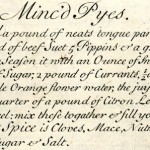 Minc'd Pyes.
a pound of neats tongue par
d of beef Suet 5 Pippins & a g
Season it with an Ounce of
Sugar; 2 pound of Currants,
le Orange flower water, the juy
uarter of a pound of Citron Le
el; mix these together & fill yo
Spice is Cloves, Mace, Nut
ugar & Salt.